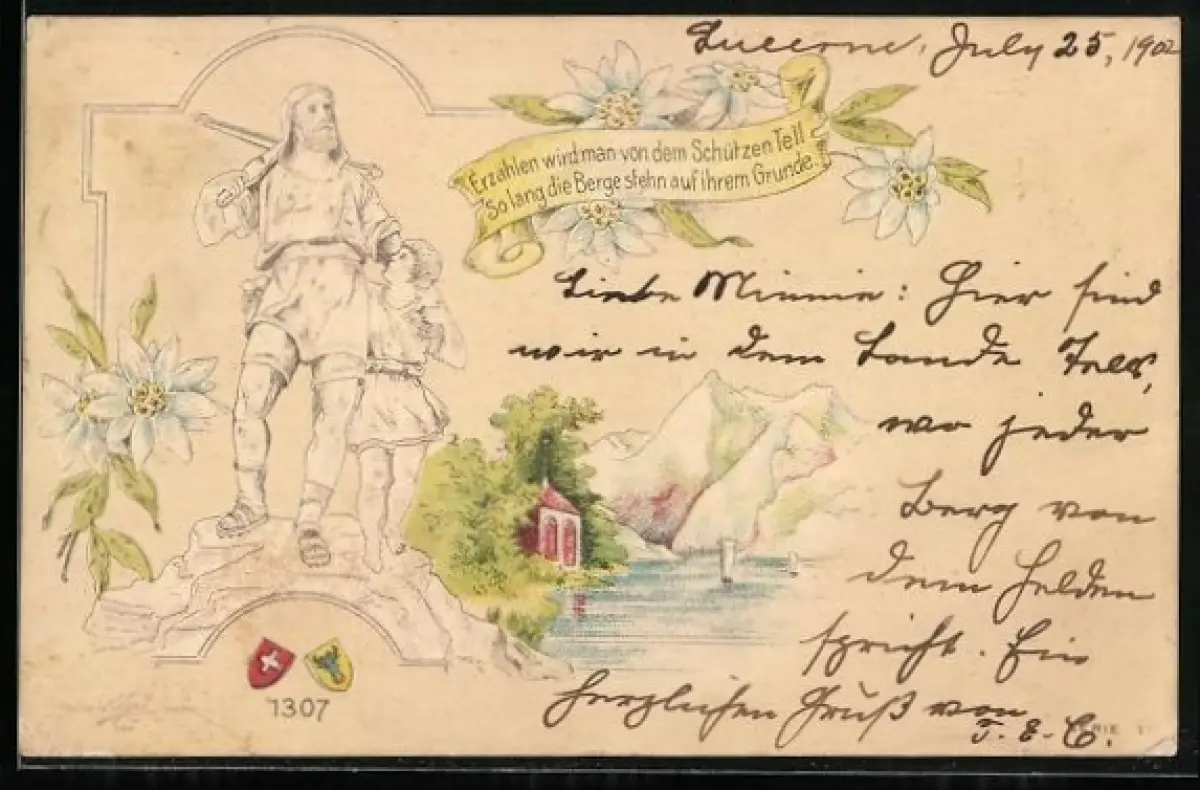 Lucerne, July 25, 1902
Erzählen wird man von dem Schützen Tell
So lang die Berge stehn auf ihrem Grunde.
Liebe Minnie: Hier sind
wir in dem Lande Tells,
wo jeder
Berg von
dem Helden
spricht. Ein
herzlichen Gruß von
T. E. C.
1307